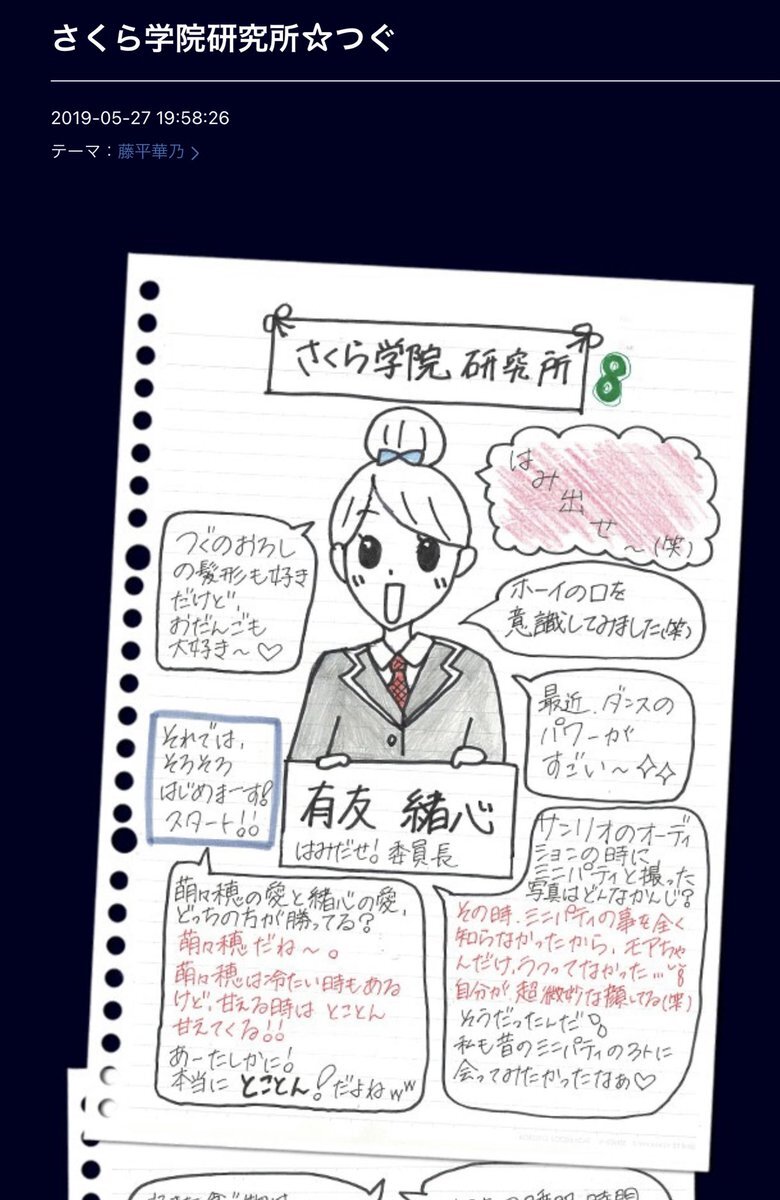 さくら学院研究所☆つぐ
2019-05-27 19:58:26
テーマ：藤平華乃
さくら学院 研究所
8
はみ出せ〜(笑)
つぐのおろし
の髪形も好き
だけど、
おだんごも
大好き〜♡
ホーイの口を
意識してみました(笑)
最近、ダンスの
パワーが
すごい〜✧✧
それでは、
そろそろ
はじめまーす!
スタート!!
有友 緒心
はみだせ!委員長
萌々穂の愛と緒心の愛、
どっちの方が勝ってる?
萌々穂だね〜。
萌々穂は冷たい時もある
けど、甘える時は とことん
甘えてくる!!
あーたしかに!
本当に とことん!だよねww
サンリオのオーディ
ションの時に
ミニパティと撮った
写真はどんなかんじ?
その時、ミニパティの事を全く
知らなかったから、モアちゃ
んだけ、うつってなかった…
自分が、超微妙な顔してる(笑)
そうだったんだ
私も昔のミニパティの3人に
会ってみたかったなぁ♡